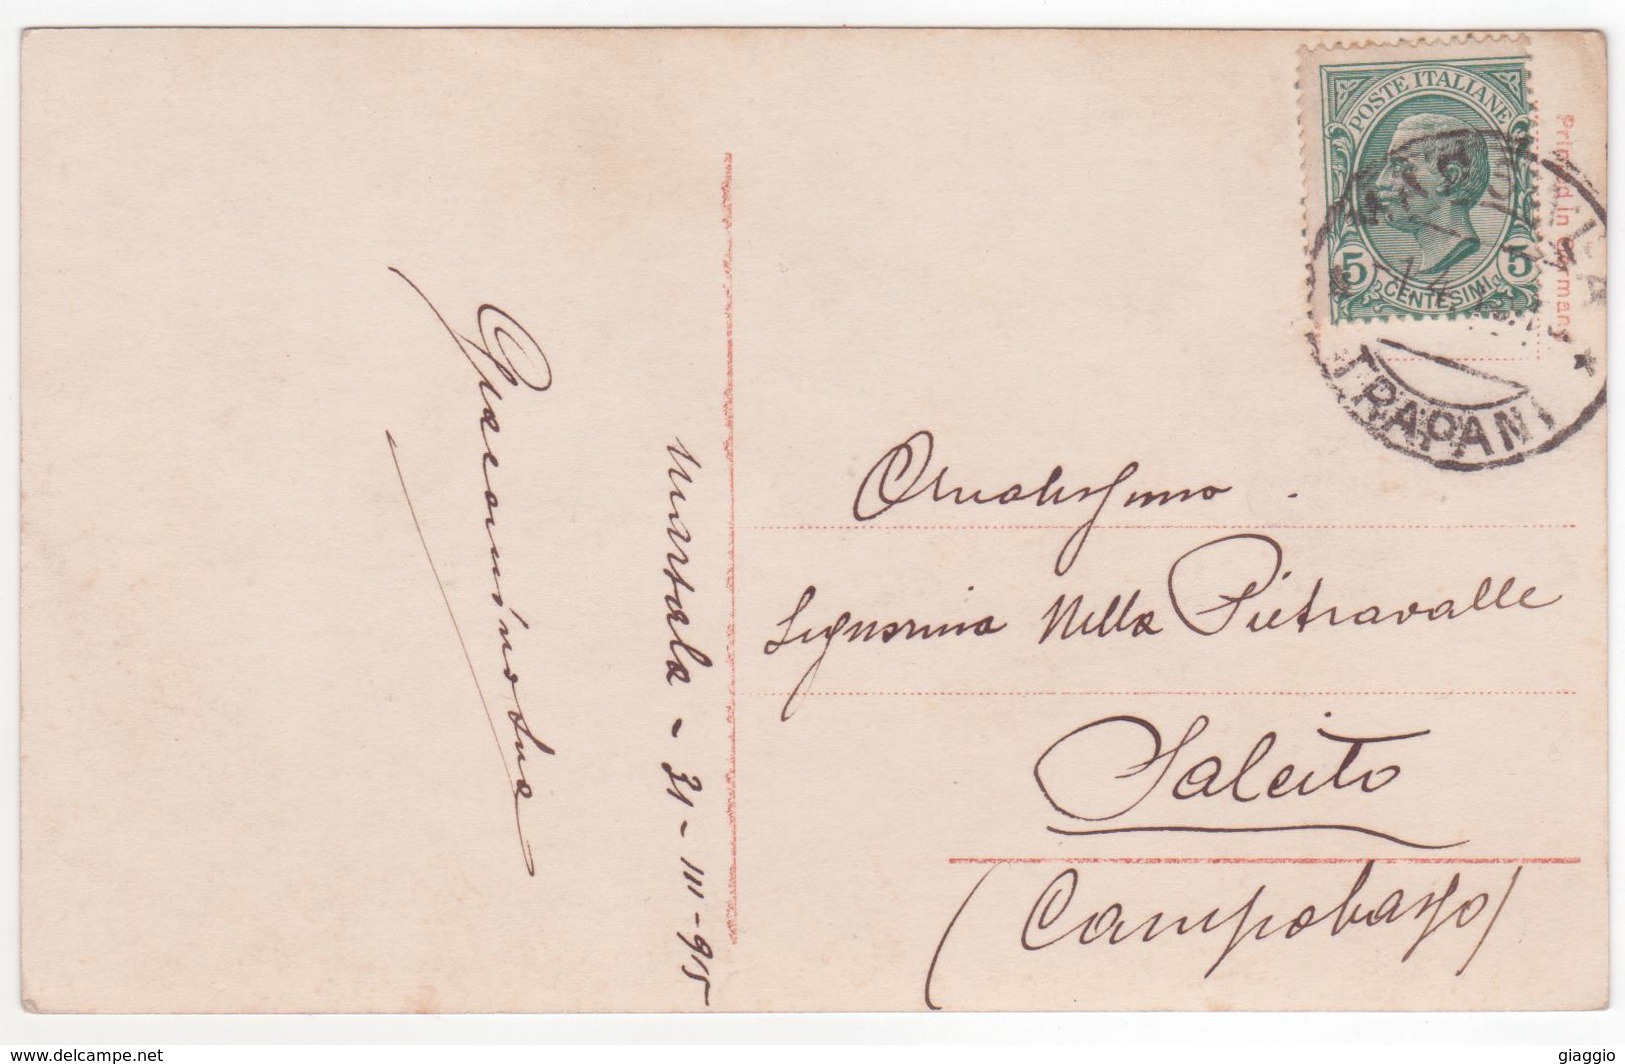 Marsala - 31 - III - 915
POSTE ITALIANE
5 5
CENTESIMI
Printed in Germany
MARSALA
TRAPANI
Ornatissimo
Signorina Nella Pietravalle
Salcito
(Campobasso)
www.delcampe.net
giaggio